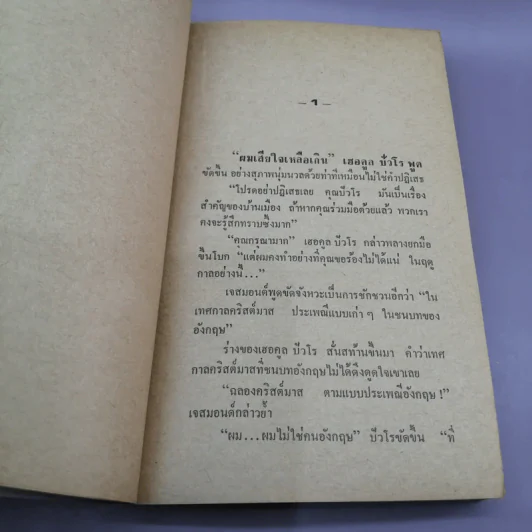 – 1 –
“ผมเสียใจเหลือเกิน” เฮอคูล ปัวโร พูด
ขัดขึ้น อย่างสุภาพนุ่มนวลด้วยท่าที่เหมือนไม่ใช่คำปฏิเสธ
“โปรดอย่าปฏิเสธเลย คุณปัวโร มันเป็นเรื่อง
สำคัญของบ้านเมือง ถ้าหากคุณร่วมมือด้วยแล้ว พวกเรา
คงจะรู้สึกทราบซึ้งมาก”
“คุณกรุณามาก” เฮอคูล ปัวโร กล่าวพลางยกมือ
ขึ้นโบก “แต่ผมคงทำอย่างที่คุณขอร้องไม่ได้แน่ ในฤดู
กาลอย่างนี้...”
เจสมอนด์พูดขัดจังหวะเป็นการชักชวนอีกว่า “ใน
เทศกาลคริสต์มาส ประเพณีแบบเก่า ๆ ในชนบทของ
อังกฤษ”
ร่างของเฮอคูล ปัวโร สั่นสท้านขึ้นมา คำว่าเทศ
กาลคริสต์มาสที่ชนบทอังกฤษไม่ได้ดึงดูดใจเขาเลย
“ฉลองคริสต์มาส ตามแบบประเพณีอังกฤษ !”
เจสมอนด์กล่าวย้ำ
“ผม...ผมไม่ใช่คนอังกฤษ” ปัวโรขัดขึ้น “ที่